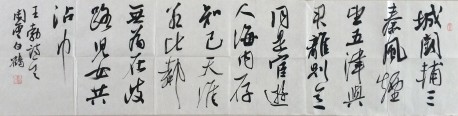 城闕輔三
秦風煙
望五津與
君離別意
同是宦遊
人海内存
知己天涯
若比鄰
無為在歧
路兒女共
沾巾
王勃詩